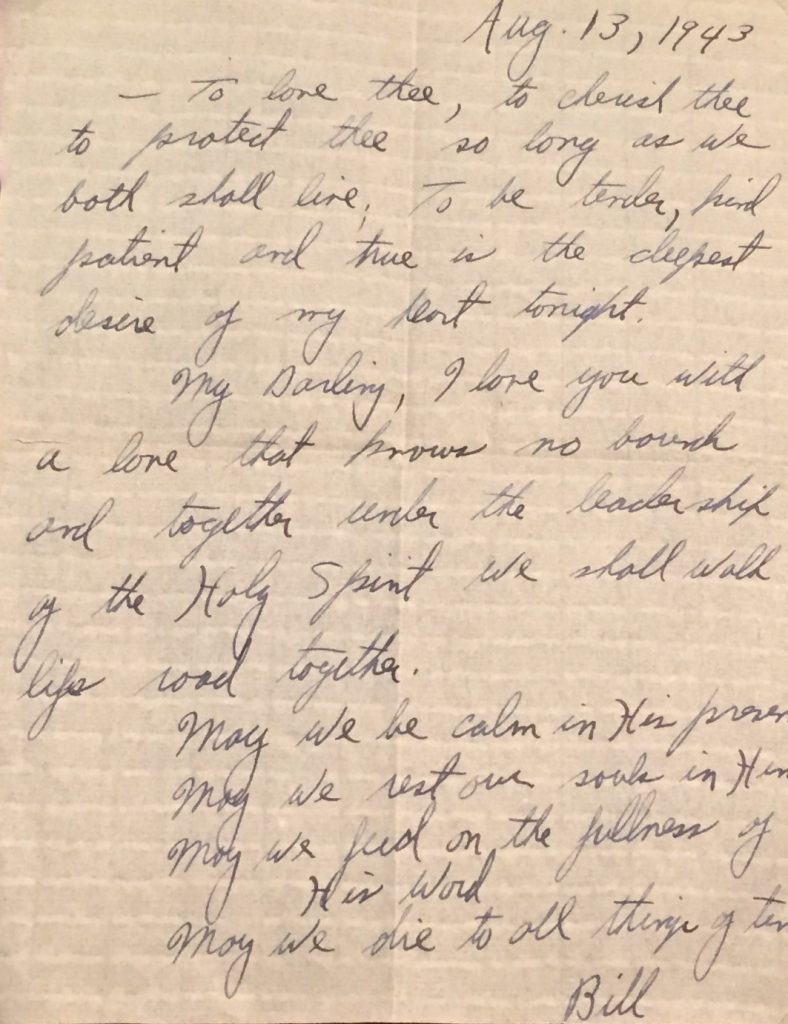 Aug. 13, 1943
— To love thee, to cherish thee
to protect thee so long as we
both shall live; To be tender, kind
patient and true is the deepest
desire of my heart tonight.
My Darling, I love you with
a love that knows no bounds
and together under the leadership
of the Holy Spirit we shall walk
lifes road together.
May we be calm in His presen
May we rest our souls in Him
May we feed on the fullness of
His Word
May we die to all things of
Bill